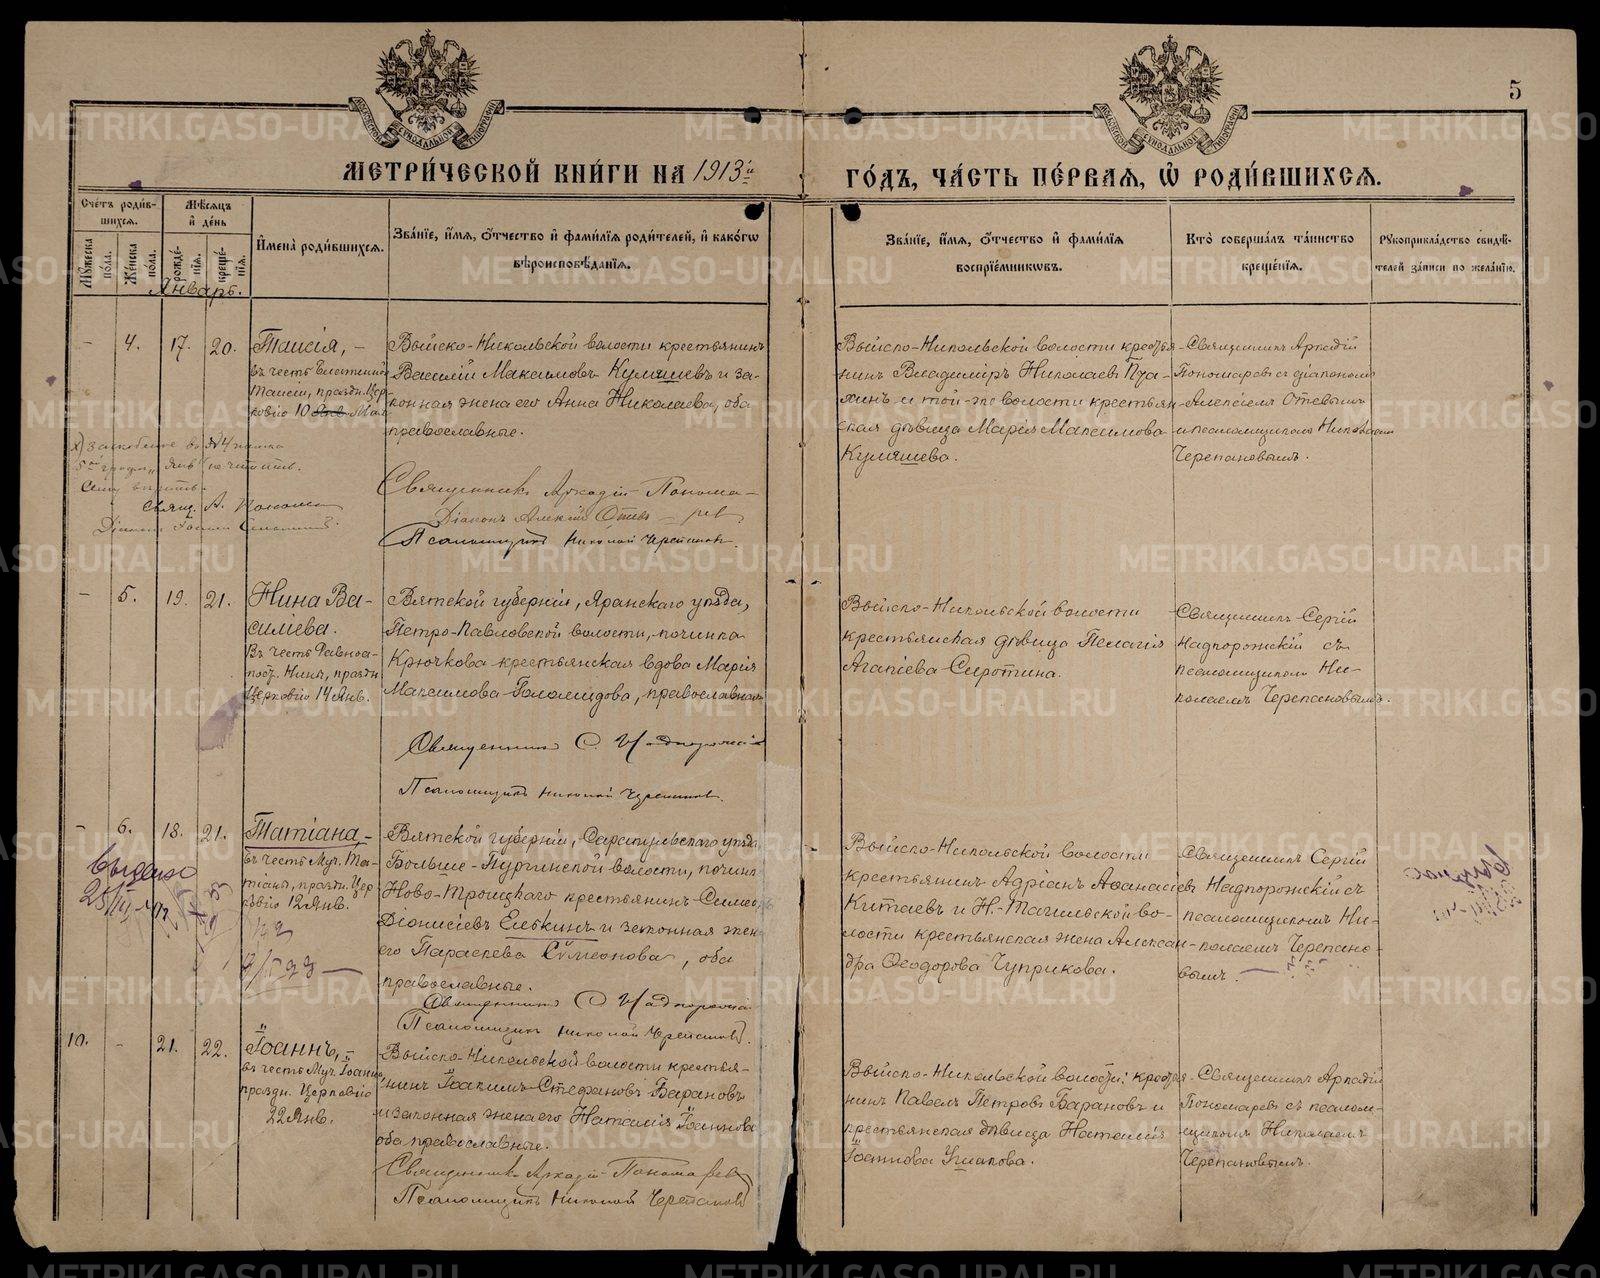 5
МЕТРИ́ЧЕСКОЙ КНИ́ГИ НА 1913й ГО́ДЪ, ЧА́СТЬ ПЕ́РВАЯ, Ѡ РОДИ́ВШИХСЯ.
Сче́тъ роди́в-
шихся.
Му́жеска по́ла.
Же́нска по́ла.
Мѣ́сяцъ
и де́нь
рожде́-
нія.
креще́-
нія.
Имена̀ роди́вшихся.
Зва́ніе, и́мя, о́тчество и фами́лія роди́телей, и како́гѡ
вѣроисповѣ́данія.
Зва́ніе, и́мя, о́тчество и фами́лія
воспріе́мниковъ.
Кто̀ соверша́лъ та́инство
креще́нія.
Рукоприкла́дство свидѣ́-
телей за́писи по жела́нію.
Январь.
- 4. 17. 20.
Таисія, -
въ честь
Таисіи, праздн. Цер-
ковію 10 Янв Мая
Священ. А.
Выйско-Никольской волости крестьянинъ
Василій Максимовъ Куляшевъ и за-
конная жена его Анна Николаева, оба
православные.
Священникъ Аркадій Понома-
Діаконъ Алексій -ревъ
Псаломщикъ Николай Черепановъ.
Выйско-Никольской волости крестья-
нинъ Владиміръ Николаевъ
и той-же волости крестьян-
ская дѣвица Марія Максимова
Куляшева.
Священникъ Аркадій
Пономаревъ съ діакономъ
Алексіемъ
и псаломщикомъ Николаемъ
Черепановымъ.
- 5. 19. 21.
Нина Ва-
сильева.
Въ честь Равноа-
пост. Нины, праздн.
Церковію 14 Янв.
Вятской губерніи, Яранскаго уѣзда,
Петро-Павловской волости, починка
Крючкова крестьянская вдова Марія
Максимова Голомидова, православная
Священникъ С. Надпорожскій
Псаломщикъ Николай Черепановъ.
Выйско-Никольской волости
крестьянская дѣвица Пелагія
Агапіева Сиротина.
Священникъ Сергій
Надпорожскій съ
псаломщикомъ Ни-
колаемъ Черепановымъ.
- 6. 18. 21.
Татіана -
въ честь Муч. Та-
тіаны, праздн. Цер-
ковію 12 Янв.
выдано
Вятской губерніи, Сарапульскаго уѣзда
Больше-Пургинской волости, починка
Ново-Троицкаго крестьянинъ Симеонъ
Діонисіевъ Елькинъ и законная жена
его Параскева Сумеонова, оба
православные.
Священникъ С. Надпорожскій
Псаломщикъ Николай Черепановъ.
Выйско-Никольской волости
крестьянинъ Адріанъ Аѳанасіевъ
Китаевъ и Н.-Тагильской во-
лости крестьянская жена Алексан-
дра Ѳеодорова Чуприкова.
Священникъ Сергій
Надпорожскій съ
псаломщикомъ Ни-
колаемъ Черепано-
вымъ.
10. - 21. 22.
Іоаннъ, -
въ честь Муч. Іоанна,
праздн. Церковію
22 Янв.
Выйско-Никольской волости крестья-
нинъ Іоакимъ Стефановъ Барановъ
и законная жена его Наталія Іоаннова
оба православные.
Священникъ Аркадій Пономаревъ
Псаломщикъ Николай Черепановъ
Выйско-Никольской волости: крестья-
нинъ Павелъ Петровъ Барановъ и
крестьянская дѣвица Наталія
Іоаннова Ушакова.
Священникъ Аркадій
Пономаревъ съ псалом-
щикомъ Николаемъ
Черепановымъ.
METRIKI.GASO-URAL.RU